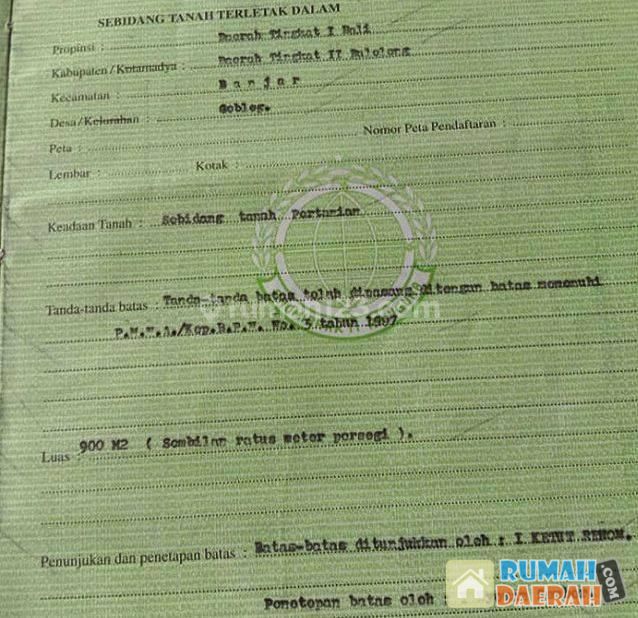 SEBIDANG TANAH TERLETAK DALAM
Propinsi : Daerah Tingkat I Bali
Kabupaten / Kotamadya : Daerah Tingkat II Buleleng
Kecamatan : B a n j a r
Desa / Kelurahan : Gobleg.
Peta : Nomor Peta Pendaftaran :
Lembar : Kotak :
Keadaan Tanah : Sebidang tanah Pertanian
Tanda-tanda batas : Tanda-tanda batas telah dipasang ditengun batas memenuhi
P.M.N.A./Kep.B.P.N. No. 3 tahun 1997
rumah123.com
Luas : 900 M2 ( Sembilan ratus meter persegi ).
Penunjukan dan penetapan batas : Batas-batas ditunjukkan oleh : I KETUT RENOM.
Penetapan batas oleh :
RUMAH
DAERAH
.COM